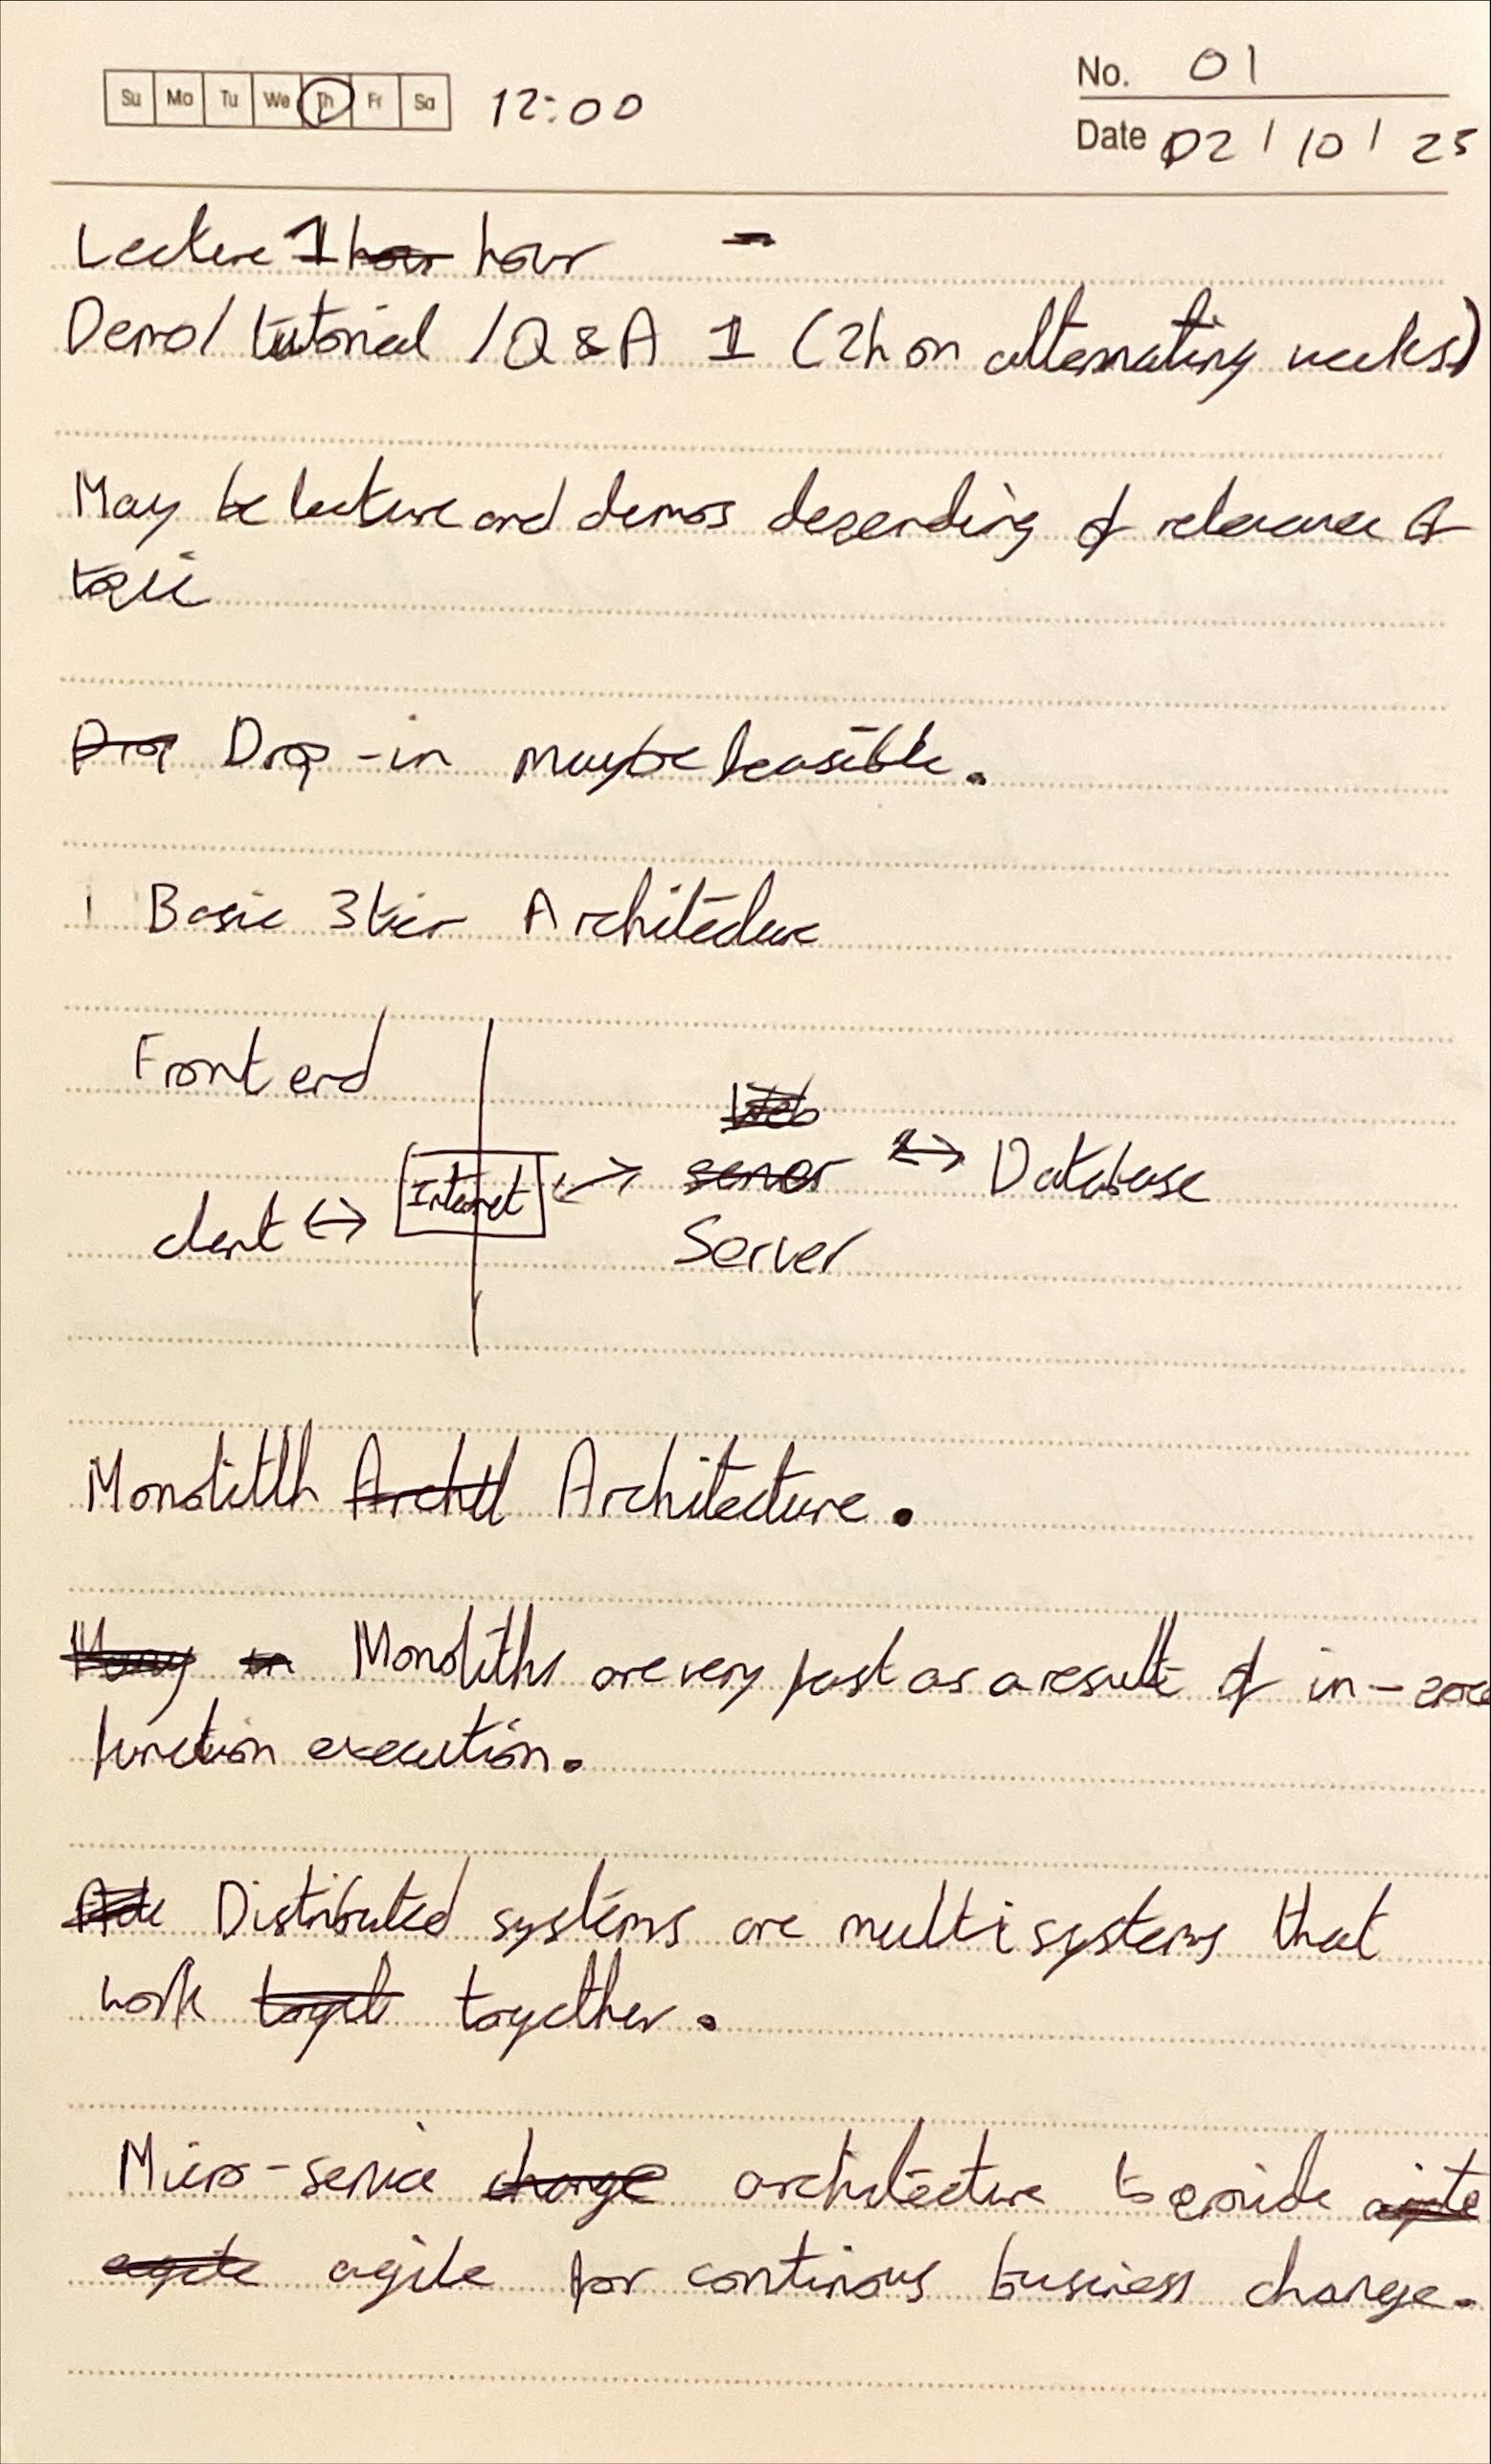 Su Mo Tu We Th Fr Sa 12:00
No. 01
Date 02 / 10 / 25
Lecture 1 hour hour
Demo / tutorial / Q & A 1 (2h on alternating weeks)
May be lecture and demos depending of relevance of
topic
Drop Drop-in maybe feasible.
Basic 3tier Architecture
Front end
Web
client ↔ Internet ↔ server ↔ Database
Server
Monolitth Archit Architecture.
Many Monoliths are very fast as a result of in-
function execution.
Distributed systems are multi systems that
work toget together.
Micro-service change architecture to provide agile
agile agile for continous business change.